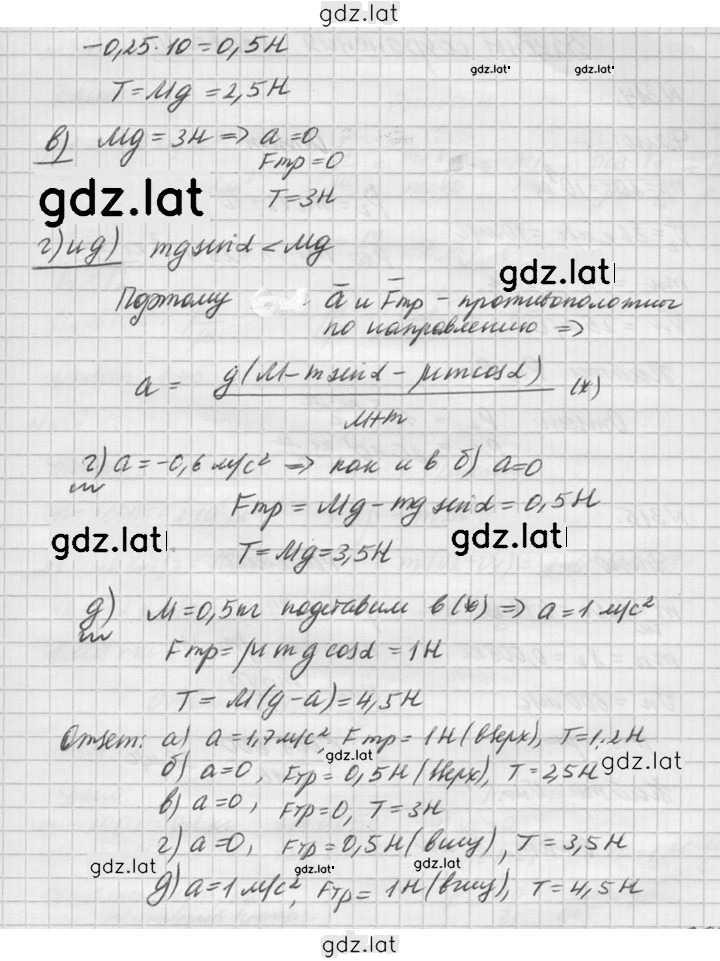 gdz.lat
−0,25·10 = 0,5Н
gdz.lat
T = Mg = 2,5Н
в) Mg = 3Н ⇒ a = 0
Fтр = 0
gdz.lat
T = 3Н
г) и д) mg sinα < Mg
gdz.lat
Поэтому a̅ и F̅тр - противоположног
по направлению ⇒
a = g(M − m sinα − μ m cosα) / M+m (*)
г) a = −0,6 м/с² ⇒ как и в б) a = 0
Fтр = Mg − mg sinα = 0,5Н
gdz.lat
gdz.lat
T = Mg = 3,5Н
д) M = 0,5кг подставим в (*) ⇒ a = 1 м/с²
Fтр = μ mg cosα = 1Н
T = M(g − a) = 4,5Н
Ответ: а) a = 1,7 м/с², Fтр = 1Н (вверх), T = 1,2Н
gdz.lat
б) a = 0, Fтр = 0,5Н (вверх), T = 2,5Н
gdz.lat
в) a = 0, Fтр = 0, T = 3Н
г) a = 0, Fтр = 0,5Н (внизу), T = 3,5Н
gdz.lat
gdz.lat
д) a = 1 м/с², Fтр = 1Н (внизу), T = 4,5Н
gdz.lat